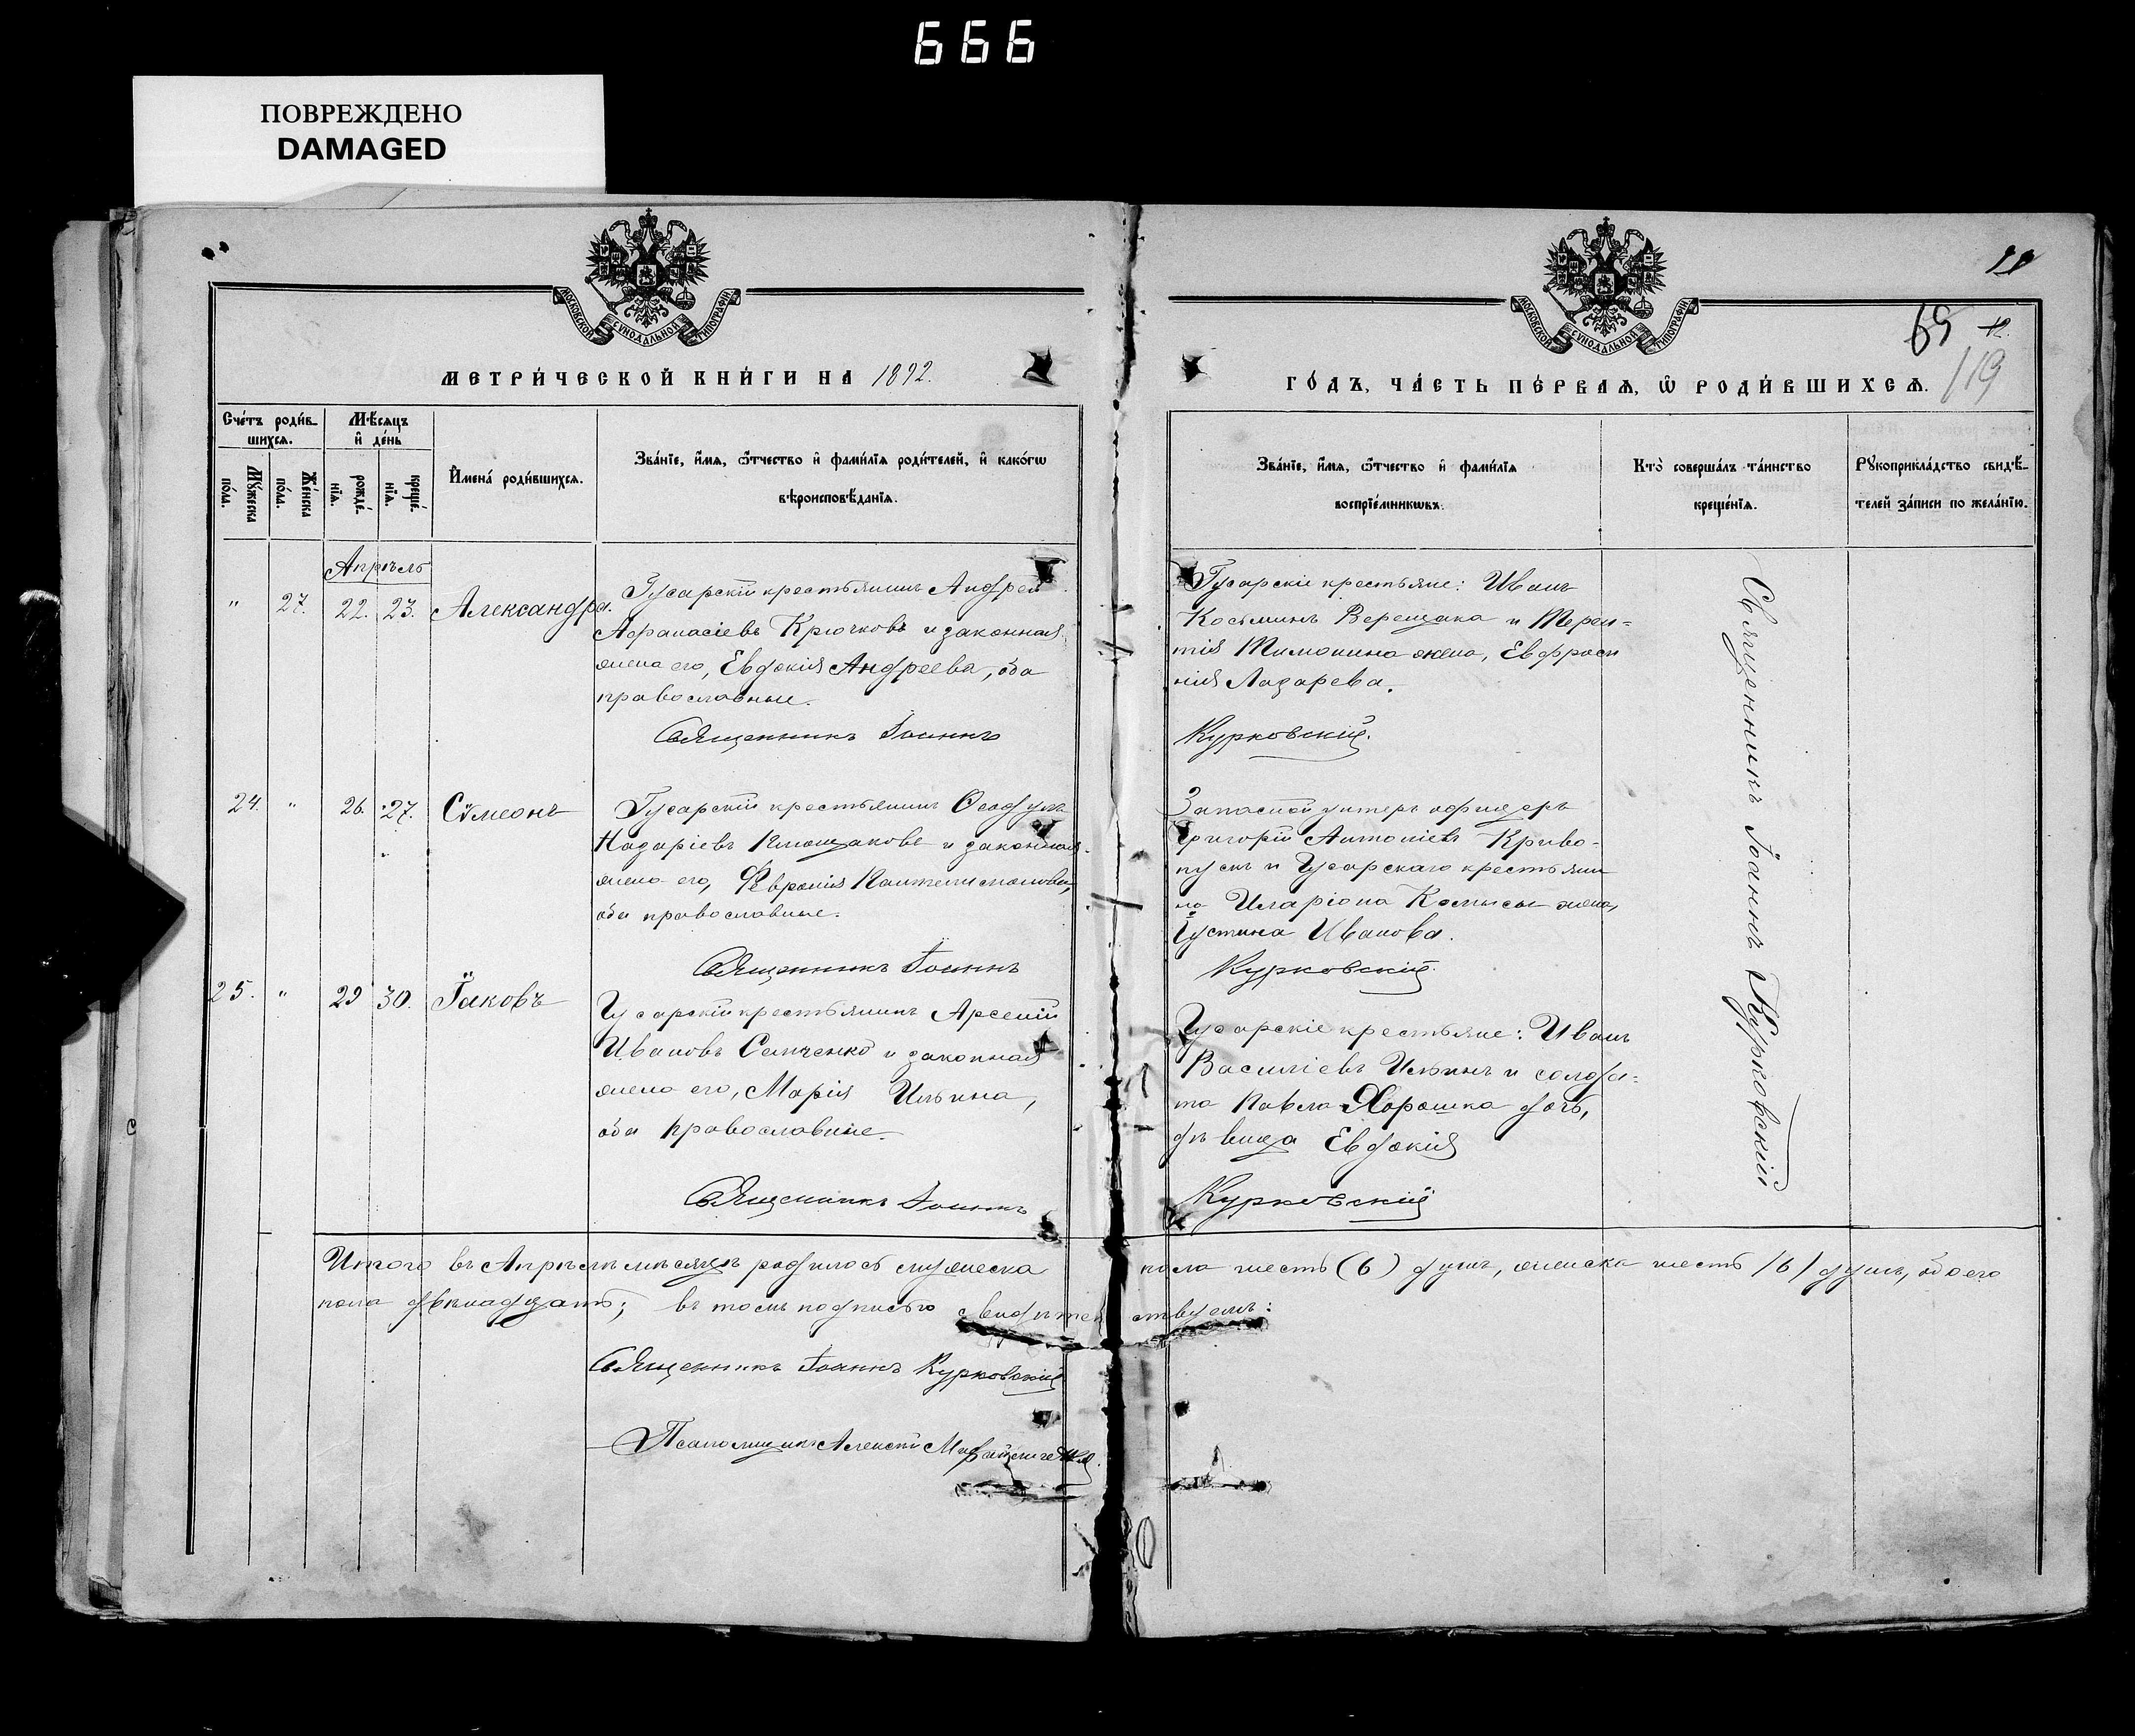 666
ПОВРЕЖДЕНО
DAMAGED
МОСКОВСКОЙ СУНОДАЛЬНОЙ ТИПОГРАФІИ
МОСКОВСКОЙ СУНОДАЛЬНОЙ ТИПОГРАФІИ
69
119
МЕТРИ́ЧЕСКОЙ КНИ́ГИ НА 1892.
ГО́ДЪ, ЧА́СТЬ ПЕ́РВАѦ, Ѡ҆ РОДИ́ВШИХСѦ.
Сче́тъ роди́в-
шихсѧ.
Мꙋ́жеска
по́ла.
Же́нска
по́ла.
Мѣ́сѧцъ
и҆ де́нь
рожде́-
нїѧ.
креще́-
нїѧ.
И҆мена̀ роди́вшихсѧ.
Зва́нїе, и҆́мѧ, ѻ҆́тчество и҆ фами́лїѧ роди́телей, и҆ како́гѡ
вѣроисповѣ́данїѧ.
Зва́нїе, и҆́мѧ, ѻ҆́тчество и҆ фами́лїѧ
воспрїе́мникѡвъ.
Кто̀ соверша́лъ та́инство
креще́нїѧ.
Рꙋкоприкла́дство свидѣ́-
телей за́писи по жела́нїю.
Апрѣль
" 27. 22. 23. Александра.
Гусарскій крестьянинъ Андрей
Афанасіевъ Крючковъ и законная
жена его, Евдокія Андреева, оба
православные.
Священникъ Іоаннъ
Гусарскіе крестьяне: Иванъ
Косьминъ Верещака и Терен=
тія Тимонина жена, Евфроси
нія Лазарева.
Курковскій.
Священникъ Іоаннъ Курковскій
24. " 26. 27. Сѷмеонъ
Гусарскій крестьянинъ Ѳеодулъ
Назаріевъ и законная
жена его, Февронія Пантелимонова,
оба православные.
Священникъ Іоаннъ
Запасной унтеръ офицеръ
Григорій Антоніевъ Криво-
пускъ и Гусарскаго крестьяни
на Иларіона Комысы жена,
Іустина Иванова.
Курковскій.
25. " 29 30. Іаковъ
Гусарскій крестьянинъ Арсеній
Ивановъ Семченко и законная
жена его, Марія Ильина,
оба православные.
Священникъ Іоаннъ
Гусарскіе крестьяне: Иванъ
Василіевъ Ильинъ и солда=
та Павла Хорошка дочь,
дѣвица Евдокія
Курковскій
Итого въ Апрѣлѣ мѣсяцѣ родилось мужеска пола шесть (6) душъ, женска шесть (6) душъ, обоего
пола двѣнадцать; въ томъ подписью свидѣтельствуемъ:
Священникъ Іоаннъ Курковскій
Псаломщикъ Алексій